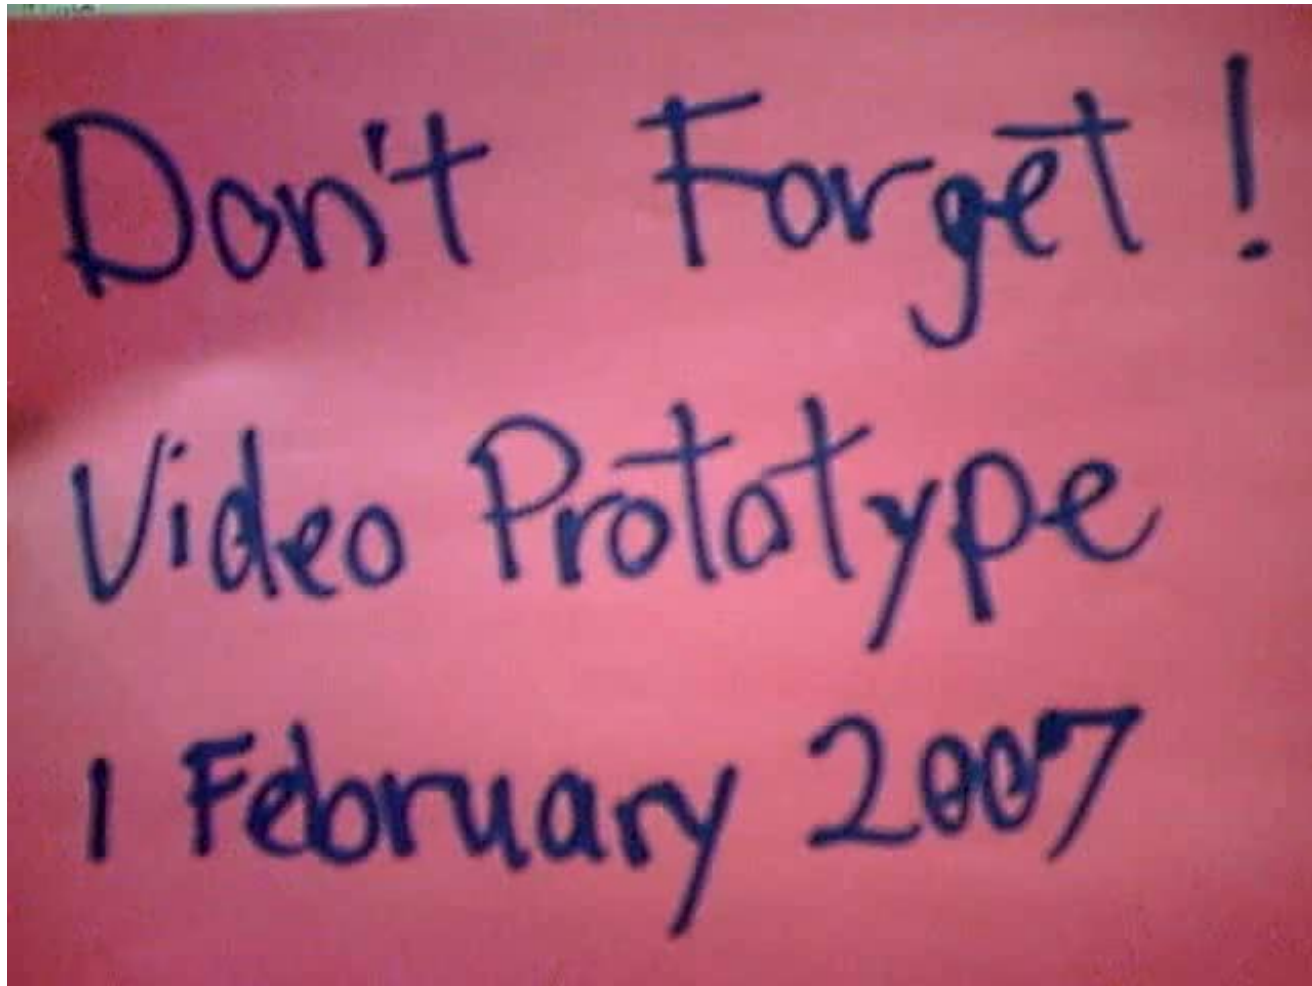 Don't Forget!
Video Prototype
1 February 2007